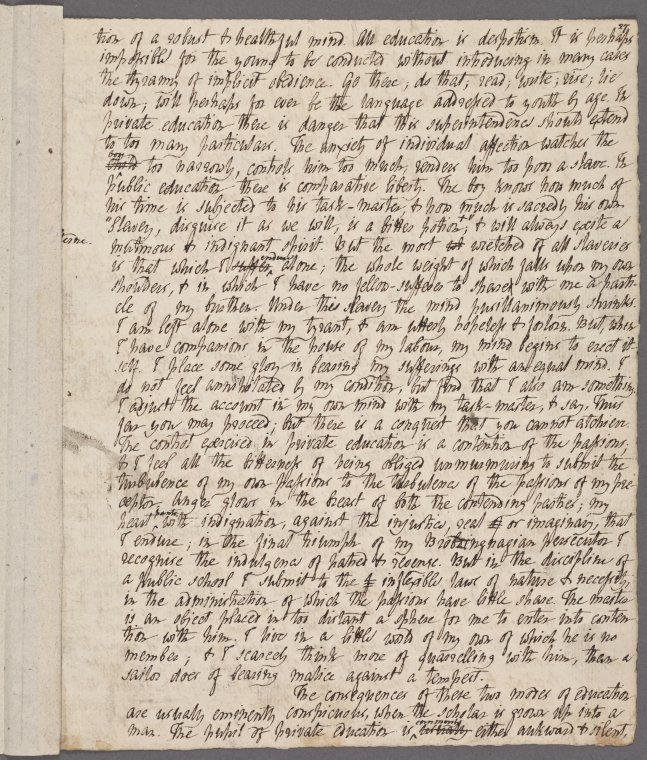 27
tion of a robust & healthful mind. All education is despotism. It is perhaps
impossible for the young to be conducted without introducing in many cases
the tyranny of implicit obedience. Go there; do that; read; write; rise; lie
down; will perhaps for ever be the language addressed to youth by age. In
private education there is danger that this superintendence should extend
to too many particulars. The anxiety of individual affection watches the
boy
child too narrowly, controls him too much, renders him too poor a slave. In
public education there is comparative liberty. The boy knows how much of
his time is subjected to his task-master, & how much is sacredly his own.
"Slavery, disguise it as we will, is a bitter potion"; & will always excite a
Sterne.
mutinous & indignant spirit. But the most wretched of all slaveries
endure
is that which I suffer alone; the whole weight of which falls upon my own
shoulders, & in which I have no fellow-sufferer to share with me a parti-
cle of my burthen. Under this slavery the mind pusillanimously shrinks.
I am left alone with my tyrant, & am utterly hopeless & forlorn. But, when
I have companions in the house of my labour, my mind begins to erect it-
self. I place some glory in bearing my sufferings with an equal mind. I
do not feel annihilated by my condition, but find that I also am something.
I adjust the account in my own mind with my task-master, & say, Thus
far you may proceed; but there is a conquest that you cannot atchieve.
The control exercised in private education is a contention of the passions;
& I feel all the bitterness of being obliged unmurmuring to submit the
turbulence of my own passions to the turbulence of the passions of my pre-
ceptor. Anger glows in the breast of both the contending parties; my
pants
heart with indignation, against the injustice, real or imaginary, that
I endure; in the final triumph of my Brobdingnagian persecutor I
recognise the indulgence of hatred & revenge. But in the discipline of
a public school I submit to the inflexible laws of nature & necessity,
in the administration of which the passions have little share. The master
is an object placed in too distant a sphere for me to enter into conten-
tion with him. I live in a little world of my own of which he is no
member; & I scarcely think more of quarrelling with him, than a
sailor does of bearing malice against a tempest.
The consequences of these two modes of education
are usually eminently conspicuous, when the scholar is grown up into a
commonly
man. The pupil of private education is either awkward & silent,